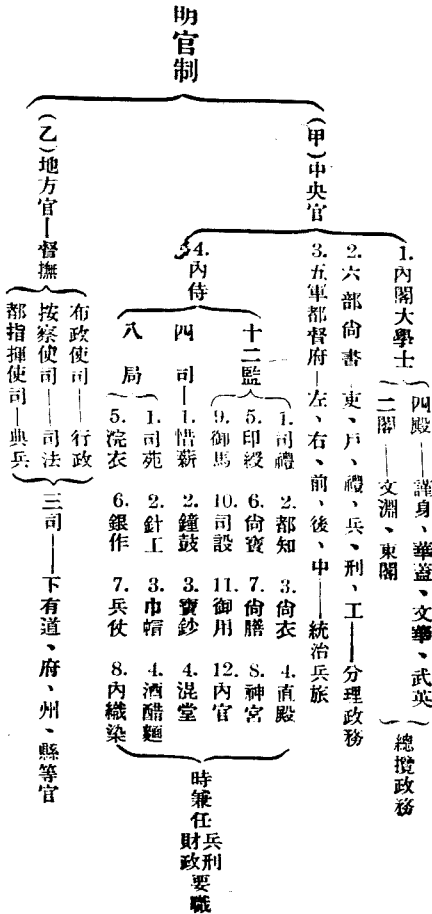 明官制
(甲)中央官
1.內閣大學士
四殿——謹身、華蓋、文華、武英
二閣——文淵、東閣
總攬政務
2.六部尚書—吏、戶、禮、兵、刑、工——分理政務
3.五軍都督府—左、右、前、後、中——統治兵旅
4.內侍
十二監
1.司禮 2.都知 3.尚衣 4.直殿
5.印綬 6.尚寶 7.尚膳 8.神宮
9.御馬 10.司設 11.御用 12.內官
四司—1.惜薪 2.鐘鼓 3.寶鈔 4.混堂
八局
1.司苑 2.針工 3.巾帽 4.酒醋麵
5.浣衣 6.銀作 7.兵仗 8.內織染
時兼任兵刑財政要職
(乙)地方官—督撫
布政使司—行政
按察使司—司法
都指揮使司—典兵
三司——下有道、府、州、縣等官